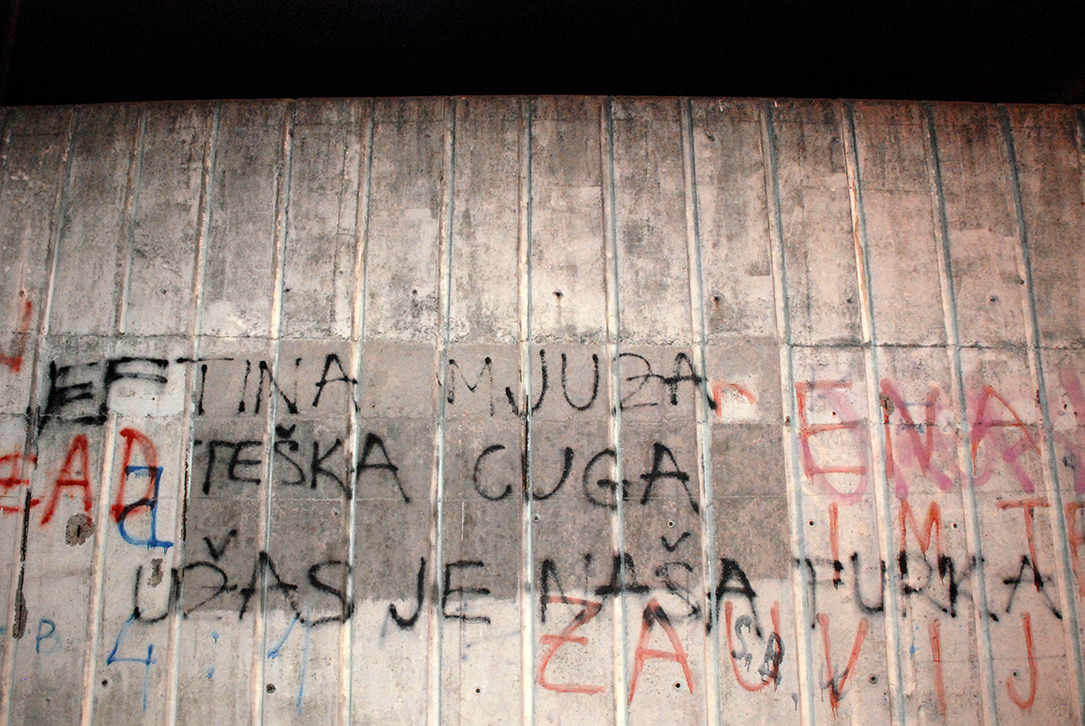 JEFTINA MJUZA
TEŠKA CUGA
UŽAS JE NAŠA FURKA
ENA
4:1
ZAUVIJ